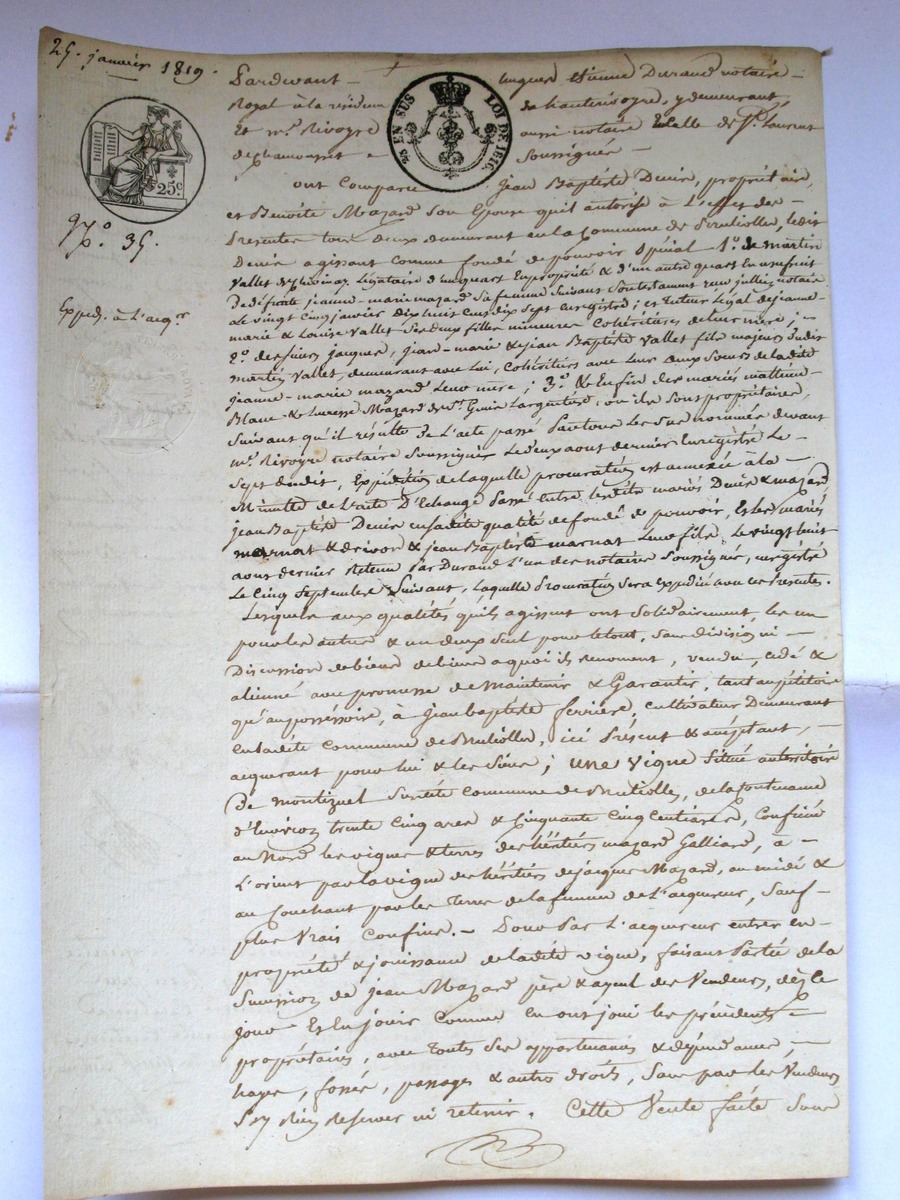 25. janvier 1819.
Pardevant hugues Etienne Durand notaire
Royal à la résidence de hauterivoyre, y demeurant,
Et Me. Rivoyre aussi notaire Celle de St. Laurent
de chamousset Soussignés
2s EN SUS LOI DE 1816.
25c.
No. 35.
Exped. à l'acqr.
ont Comparu Jean Baptiste Denis, propriétaire,
et Benoite Mazard Son Epouse qu'il autorise à L'effet des
Presentes tous deux demeurant en la Commune de Brulioles, ledit
Denis agissant comme fondé de pouvoir Spécial 1o. de martin
Vallet Légataire d'un quart En propriété & d'un autre quart En usufruit
De défunte jeanne-marie mazard Sa femme Suivant Son testament reçu notaire
Le vingt Cinq janvier Dix huit Cent Dix Sept Enregistré; et Tuteur Légal de jeanne
marie & Louise Vallet Ses deux filles mineures Cohéritières de leur mère;
2o. des Sieurs jacques, jean-marie & jean Baptiste Vallet fils majeurs dudit
martin Vallet, demeurant avec Lui, Cohéritiers avec Leur deux Soeurs de Ladite
jeanne-marie mazard Leur mère; 3o. & Enfin des mariés
Blanc & Mazard de St. Genis Largentière, où ils Sont propriétaires,
Suivant qu'il résulte de L'acte passé Par tous Les Sus nommés devant
Me. Rivoyre notaire Soussigné Le deux aout dernier Enregistré Le
Sept dudit, Expédition de laquelle procuration est annexée à la
Minute de L'acte D'Echange Passé Entre lesdits mariés Denis & mazard
jean Baptiste Denis en Sadite qualité de fondé de pouvoir, Et Les mariés
marnat & & jean Baptiste marnat Leur fils, Le vingt huit
aout dernier Retenu Par Durand L'un des notaires Soussignés, enregistré
Le Cinq Septembre Suivant, Laquelle Procuration Sera Expédiée avec ces Presentes.
Lesquels aux qualités qu'ils agissent ont Solidairement, les un
pour les autres & un d'eux Seul pour le tout, Sans division ni
Discussion de biens à quoi ils renoncent, vendu, cédé &
aliéné avec promesse de Maintenir & Garantir, tant au pétitoire
qu'au possessoire, à Jean baptiste ferriere, cultivateur Demeurant
en Ladite Commune de Brulioles, ici Présent & acceptant,
acquerant pour lui & les Siens; une vigne Située au territoire
De montizuel Sur dite Commune de Brulioles, de la Contenance
d'Environ trente Cinq ares & Cinquante Cinq Centiares, Confinée
au Nord les vignes & terres des héritiers mazard Galliard, à
L'orient par la vigne des héritiers de jacques Mazard, au midi &
au Couchant par les Terre de la femme de L'acquereur, Sauf
plus Vrais Confins. Pour Par L'acquereur entrer en
propriété & jouissance de ladite vigne, faisant Partie de la
Succession de Jean Mazard père & ayeul des Vendeurs, dès ce
jour Et En jouir Comme En ont joui les précédents
propriétaires, avec Toutes Ses appartenances & dépendances,
hayes, fossés, passages & autres droits, Sans par les Vendeurs
S'y Rien Reserver ni retenir. Cette Vente faite Sous